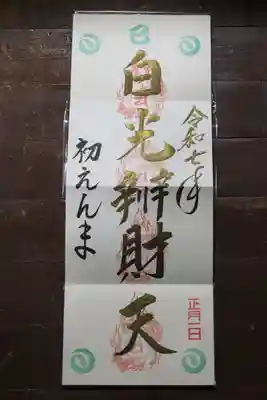 巳
令和七年
白光辨財天
初えんま
正月一日